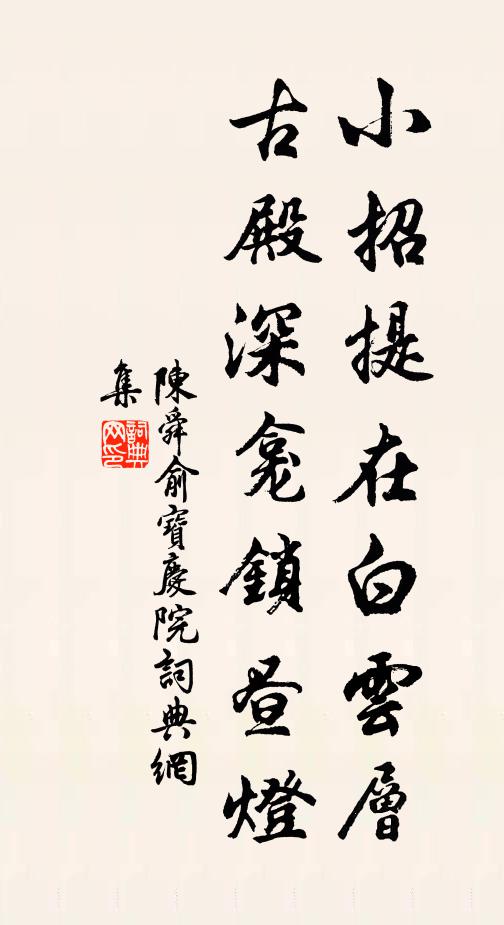 小招提在白雲層
古殿深龕鎖昼燈
陳舜俞寶慶院詞典網
集
詞典
网印